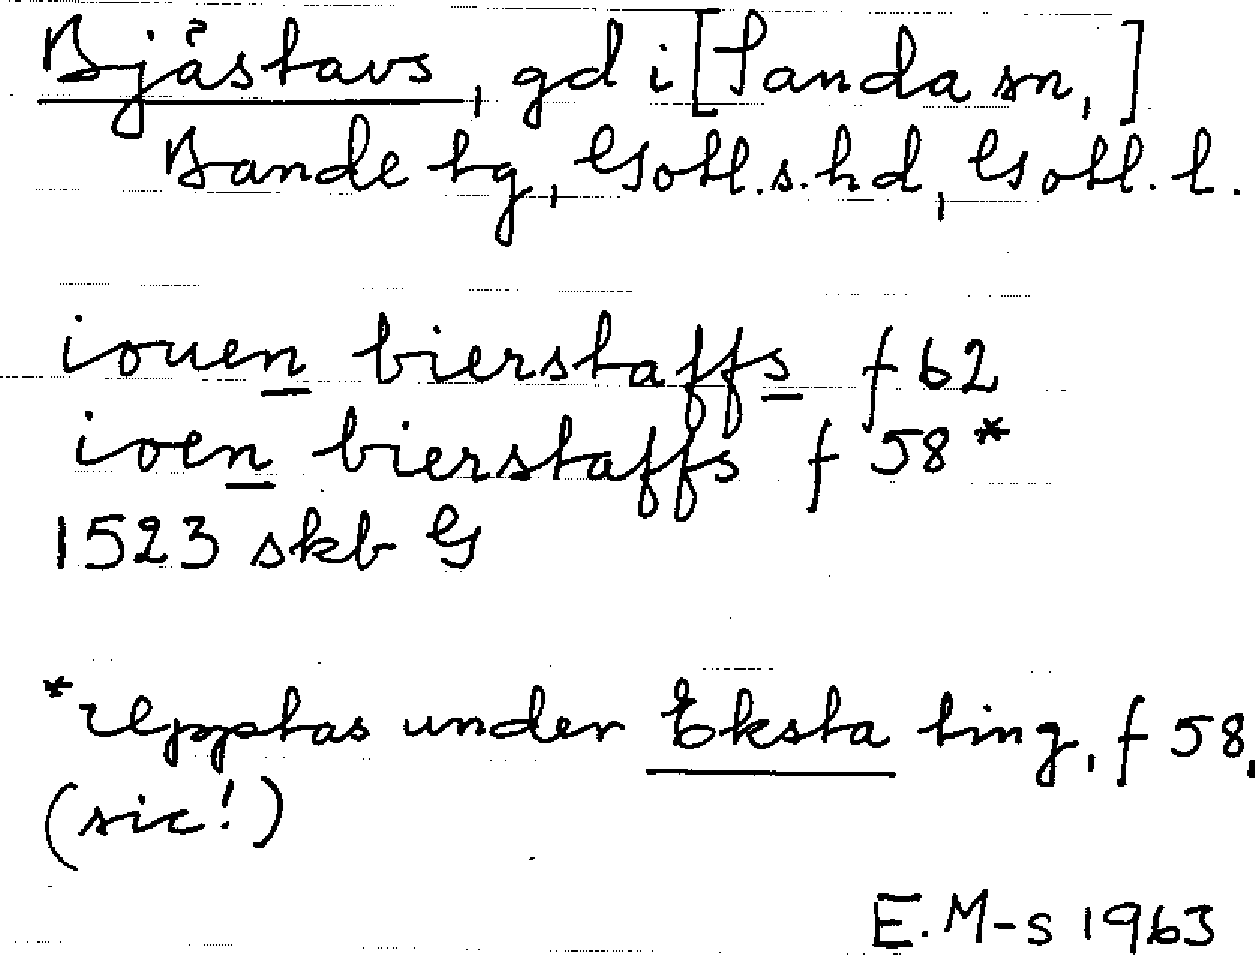 Bjåstavs, gd i [Sanda sn,]
Bande tg, Gotl.s.hd, Gotl. l.
iouen bierstaffs f 62
ioen bierstaffs f 58*
1523 skb G
*Upptas under Eksta ting, f 58,
(sic!)
E. M-s 1963